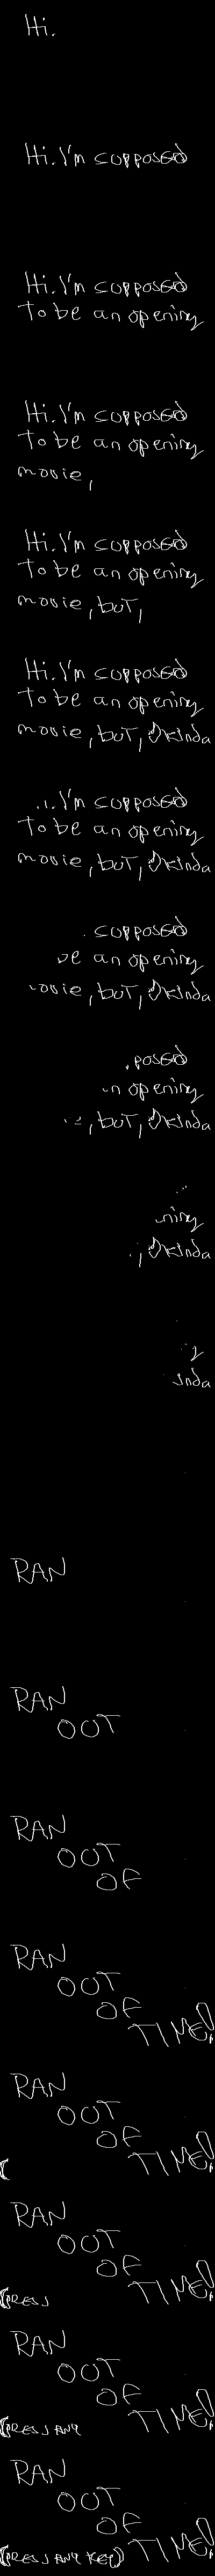 Hi.
Hi. I'm supposed
Hi. I'm supposed
To be an opening
Hi. I'm supposed
To be an opening
movie,
Hi. I'm supposed
To be an opening
movie, but,
Hi. I'm supposed
To be an opening
movie, but, I kinda
I'm supposed
To be an opening
movie, but, I kinda
supposed
be an opening
ovie, but, I kinda
posed
n opening
, but, I kinda
ning
, I kinda
inda
RAN
RAN
OUT
RAN
OUT
OF
RAN
OUT
OF
TIME!
RAN
OUT
OF
TIME!
(
RAN
OUT
OF
TIME!
(PRESS
RAN
OUT
OF
TIME!
(PRESS ANY
RAN
OUT
OF
TIME!
(PRESS ANY KEY)